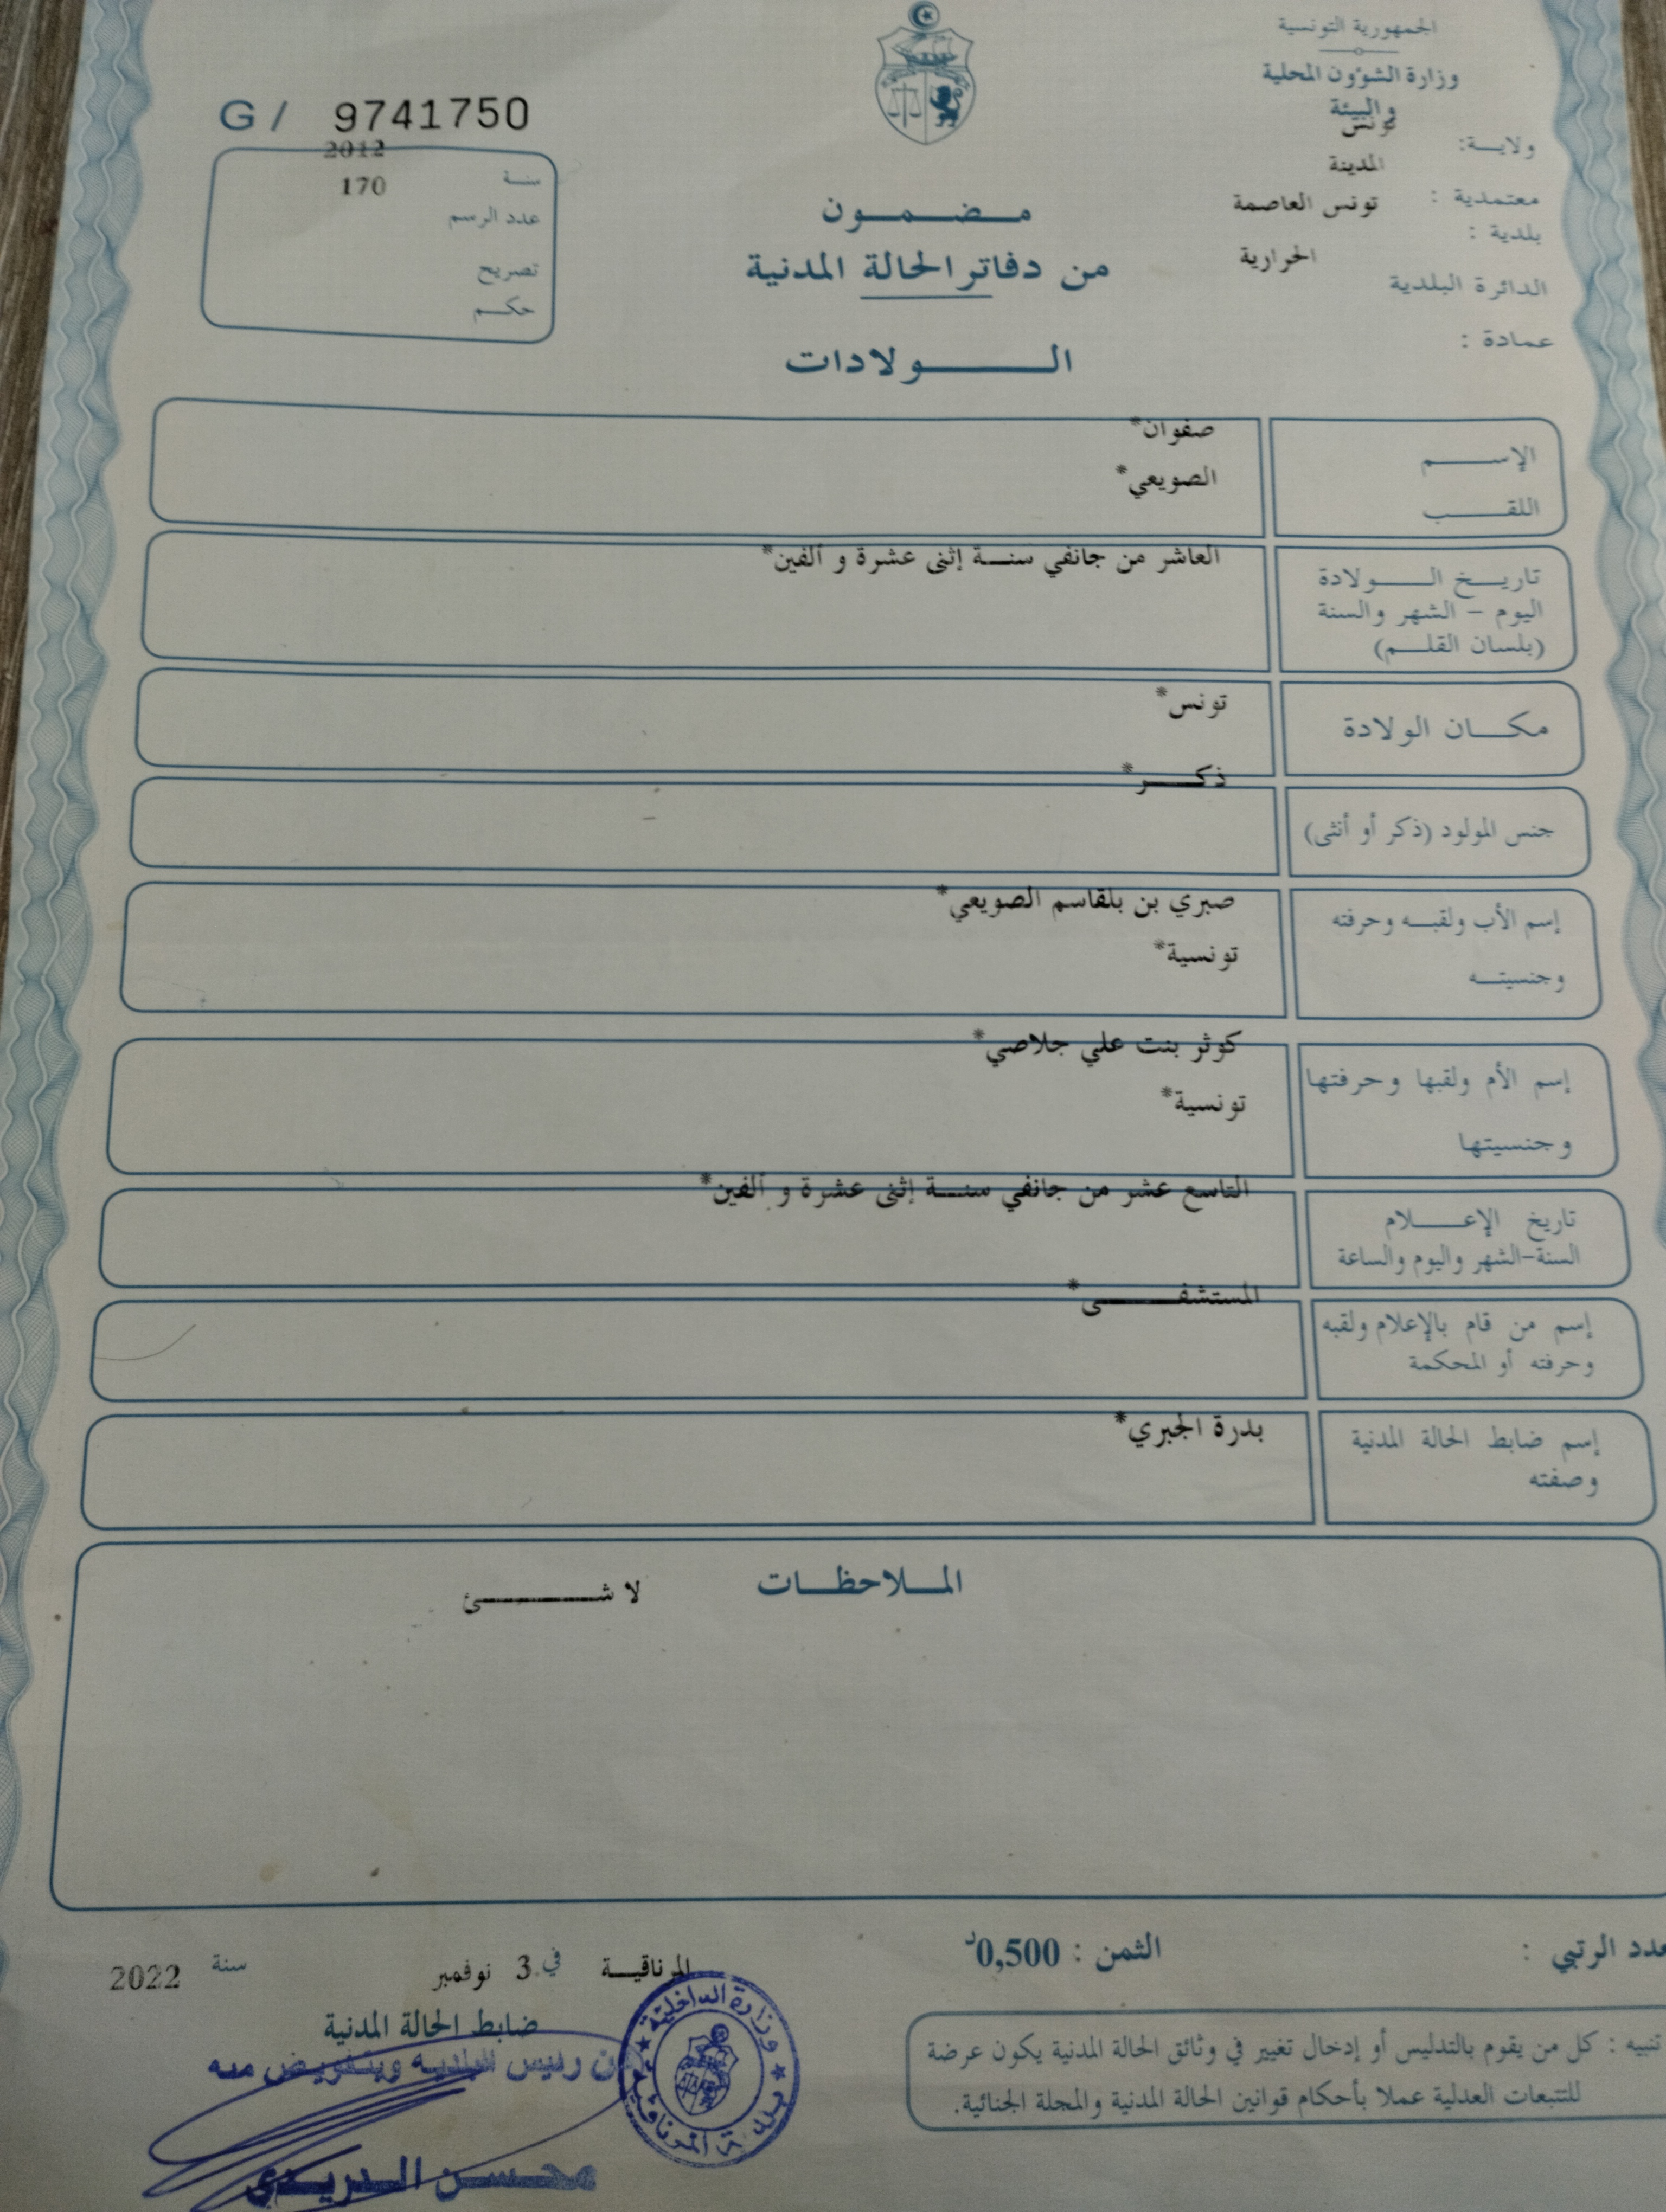 الجمهورية التونسية
وزارة الشؤون المحلية
والبيئة
ولايـة: تونس
المدينة
معتمدية : تونس العاصمة
بلدية :
الحرارية
الدائرة البلدية
عمادة :
G / 9741750
2012
سنـة
170
عدد الرسم
تصريح
حكـم
مـضـمـون
من دفاتر الحالة المدنية
الـولادات
الإسـم
صفوان*
اللقـب
الصويعي*
تاريـخ الـولادة
اليوم – الشهر والسنة
(بلسان القلـم)
العاشر من جانفي سنـة إثنى عشرة و ألفين*
مكـان الولادة
تونس*
جنس المولود (ذكر أو أنثى)
ذكـر*
إسم الأب ولقبـه وحرفته
وجنسيتـه
صبري بن بلقاسم الصويعي*
تونسية*
إسم الأم ولقبها وحرفتها
وجنسيتها
كوثر بنت علي جلاصي*
تونسية*
تاريخ الإعـلام
السنة-الشهر واليوم والساعة
التاسع عشر من جانفي سنـة إثنى عشرة و ألفين*
إسم من قام بالإعلام ولقبه
وحرفته أو المحكمة
المستشفـى*
إسم ضابط الحالة المدنية
وصفته
بدرة الجبري*
الملاحظـات
لا شـئ
عدد الرتبي :
الثمن : 0,500د
المرناقيـة في 3 نوفمبر سنة 2022
ضابط الحالة المدنية
عن رئيس البلدية وبتفويض منه
محسن الدريدي
وزارة الداخلية
بلدية المرناقية
تنبيه : كل من يقوم بالتدليس أو إدخال تغيير في وثائق الحالة المدنية يكون عرضة
للتتبعات العدلية عملا بأحكام قوانين الحالة المدنية والمجلة الجنائية.